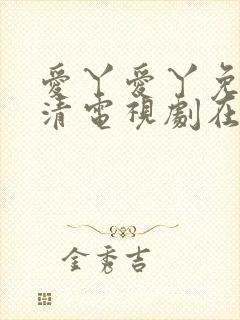 愛丫愛丫免
清電視劇在
金秀吉